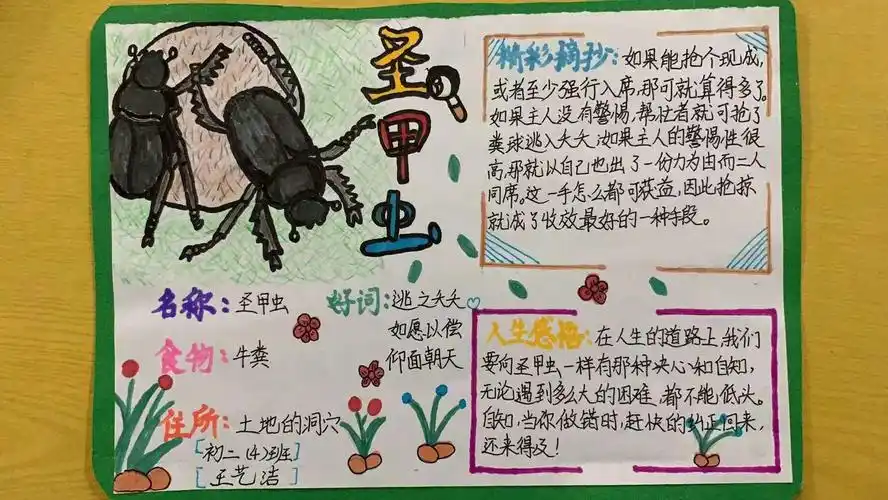 圣甲虫
名称：圣甲虫
食物：牛粪
住所：土地的洞穴
[初二(4)班]
[王艺洁]
好词：逃之夭夭
如愿以偿
仰面朝天
精彩摘抄：如果能抢个现成，
或者至少强行入席，那可就算得多了。
如果主人没有警惕，帮忙者就可抢了
粪球逃之夭夭；如果主人的警惕性很
高，那就以自己也出了一份力为由而二人
同席。这一手怎么都可获益，因此抢掠
就成了收效最好的一种手段。
人生感悟：在人生的道路上，我们
要向圣甲虫一样有那种决心和自知，
无论遇到多么大的困难，都不能低头。
自知，当你做错时，赶快的纠正回来，
还来得及！